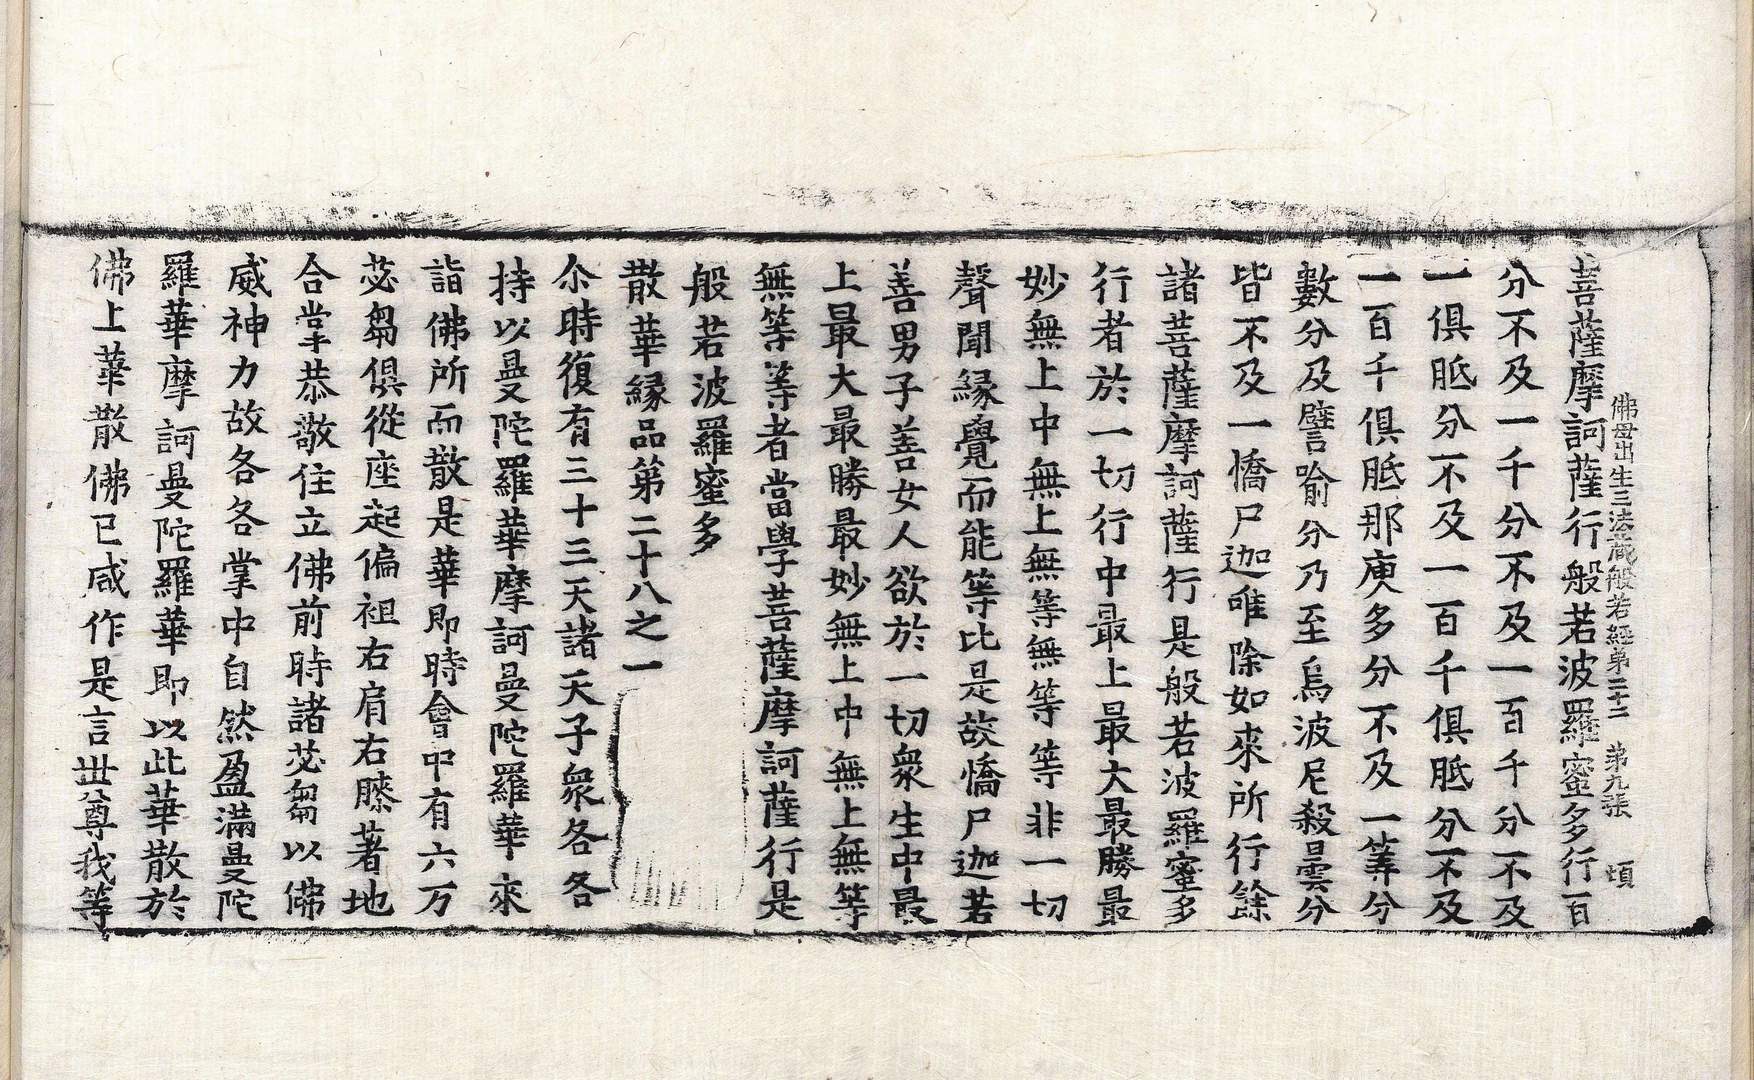 佛母出生三法藏般若經第二十二　第九張　頃
菩薩摩訶薩行般若波羅蜜多行百
分不及一千分不及一百千分不及
一俱胝分不及一百千俱胝分不及
一百千俱胝那庾多分不及一筭分
數分及譬喻分乃至烏波尼殺曇分
皆不及一憍尸迦唯除如來所行餘
諸菩薩摩訶薩行是般若波羅蜜多
行者於一切行中最上最大最勝最
妙無上中無上無等無等等非一切
聲聞緣覺而能等比是故憍尸迦若
善男子善女人欲於一切衆生中最
上最大最勝最妙無上中無上無等
無等等者當學菩薩摩訶薩行是
般若波羅蜜多
散華緣品第二十八之一
尒時復有三十三天諸天子衆各各
持以曼陀羅華摩訶曼陀羅華來
詣佛所而散是華即時會中有六万
苾芻俱從座起偏袒右肩右膝著地
合掌恭敬住立佛前時諸苾芻以佛
威神力故各各掌中自然盈滿曼陀
羅華摩訶曼陀羅華即以此華散於
佛上華散佛已咸作是言世尊我等